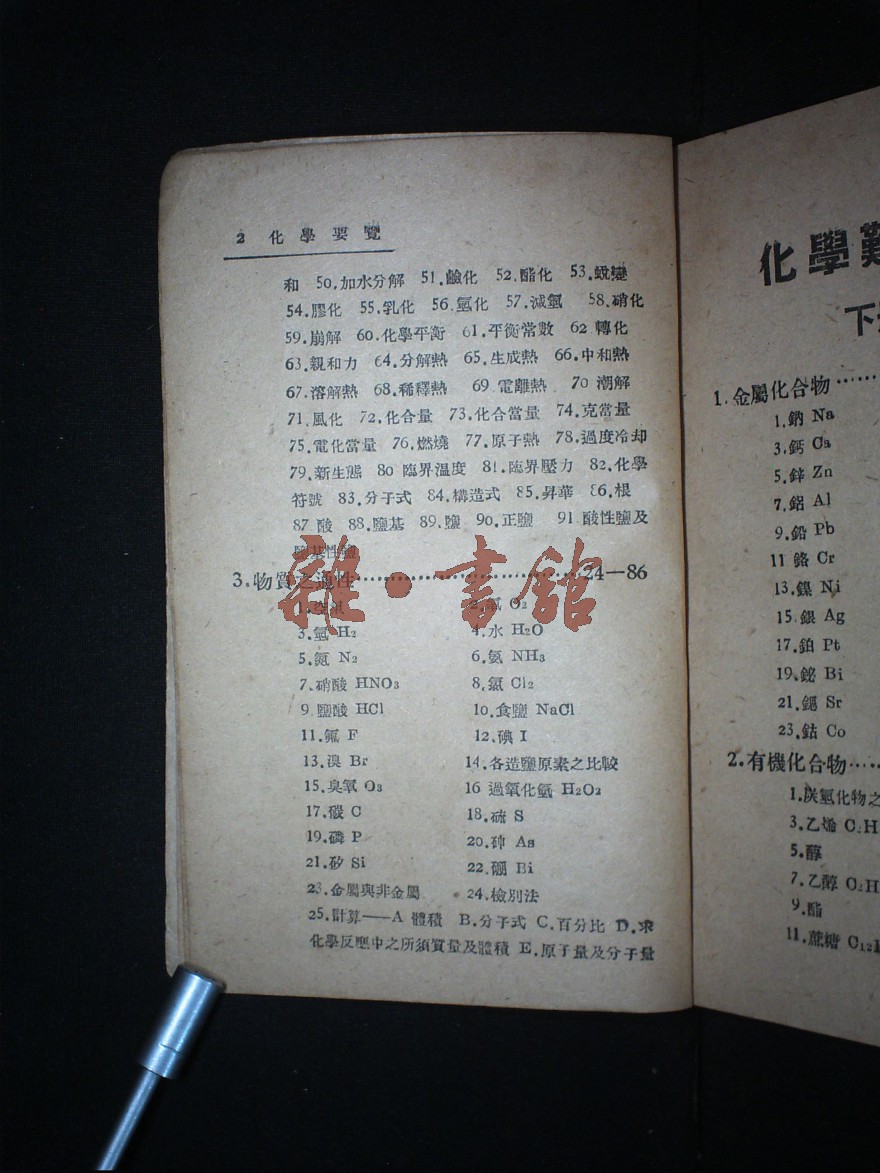 2 化學要覽
和 50.加水分解 51.鹼化 52.酯化 53.蛻變
54.膠化 55.乳化 56.氫化 57.減氫 58.硝化
59.崩解 60.化學平衡 61.平衡常數 62 轉化
63.親和力 64.分解熱 65.生成熱 66.中和熱
67.溶解熱 68.稀釋熱 69.電離熱 70 潮解
71.風化 72.化合量 73.化合當量 74.克當量
75.電化當量 76.燃燒 77.原子熱 78.過度冷却
79.新生態 80 臨界溫度 81.臨界壓力 82.化學
符號 83.分子式 84.構造式 85.昇華 86.根
87 酸 88.鹽基 89.鹽 90.正鹽 91 酸性鹽及
鹽基性鹽
3.物質之通性……………………………24—86
1. 2.氧 O2
3.氫 H2 4.水 H2O
5.氮 N2 6.氨 NH3
7.硝酸 HNO3 8.氯 Cl2
9.鹽酸 HCl 10.食鹽 NaCl
11.氟 F 12.碘 I
13.溴 Br 14.各造鹽原素之比較
15.臭氧 O3 16 過氧化氫 H2O2
17.碳 C 18.硫 S
19.磷 P 20.砷 As
21.矽 Si 22.硼 Bi
23.金屬與非金屬 24.檢別法
25.計算——A 體積 B.分子式 C.百分比 D.求
化學反應中之所須質量及體積 E.原子量及分子量
雜·書館
化學難
下
1.金屬化合物……
1.鈉 Na
3.鈣 Ca
5.鋅 Zn
7.鋁 Al
9.鉛 Pb
11 鉻 Cr
13.鎳 Ni
15.銀 Ag
17.鉑 Pt
19.鉍 Bi
21.鍶 Sr
23.鈷 Co
2.有機化合物……
1.炭氫化物之
3.乙烯 C2H
5.醇
7.乙醇 C2H
9.酯
11.蔗糖 C12H